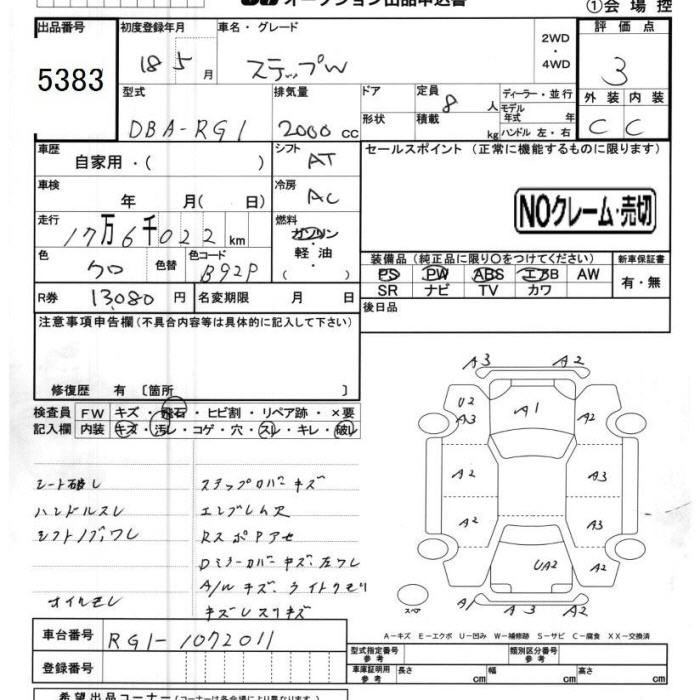 オークション出品申込書
①会場控
出品番号 初度登録年月 車名・グレード 2WD・4WD 評価点
5383 18 5月 ステップW 3
型式 排気量 ドア 定員 ディーラー・並行 外装 内装
DBA-RG1 2000cc 形状 8人 モデル年式 年 C C
積載 kg ハンドル 左・右
車歴 自家用・( ) シフト AT セールスポイント (正常に機能するものに限ります)
車検 年 月( 日) 冷房 AC
NOクレーム・売切
走行 17万6千022km 燃料 ガソリン・軽油・( )
色 クロ 色替 色コード B92P
装備品 (純正品に限り○をつけてください) 新車保証書
PS PW ABS エアB AW 有・無
SR ナビ TV カワ
R券 13,080円 名変期限 月 日
後日品
注意事項申告欄 (不具合内容等は具体的に記入して下さい)
修復歴 有 〔箇所 〕
検査員 FW キズ・飛石・ヒビ割・リペア跡・×要
記入欄 内装 キズ・汚レ・コゲ・穴・スレ・キレ・破レ
A3 A2
U2 A3 A1 A2
A2 A3
A2 A3
A2 UA2 A2
A1 A3 A2
スペア
シート破レ ステップカバーキズ
ハンドルスレ エンブレム欠
シフトノブワレ RスポPアセ
Dミラーカバーキズ、左ワレ
A/Wキズ、ライトクモリ
オイルモレ キズレスリキズ
A－キズ E－エクボ U－凹み W－補修跡 S－サビ C－腐食 XX－交換済
車台番号 RG1-1072011
型式指定番号 参考 類別区分番号 参考
登録番号
車庫証明用 参考 長さ cm 幅 cm 高さ cm
希望出品コーナー (コーナーは各会場により異なります。)